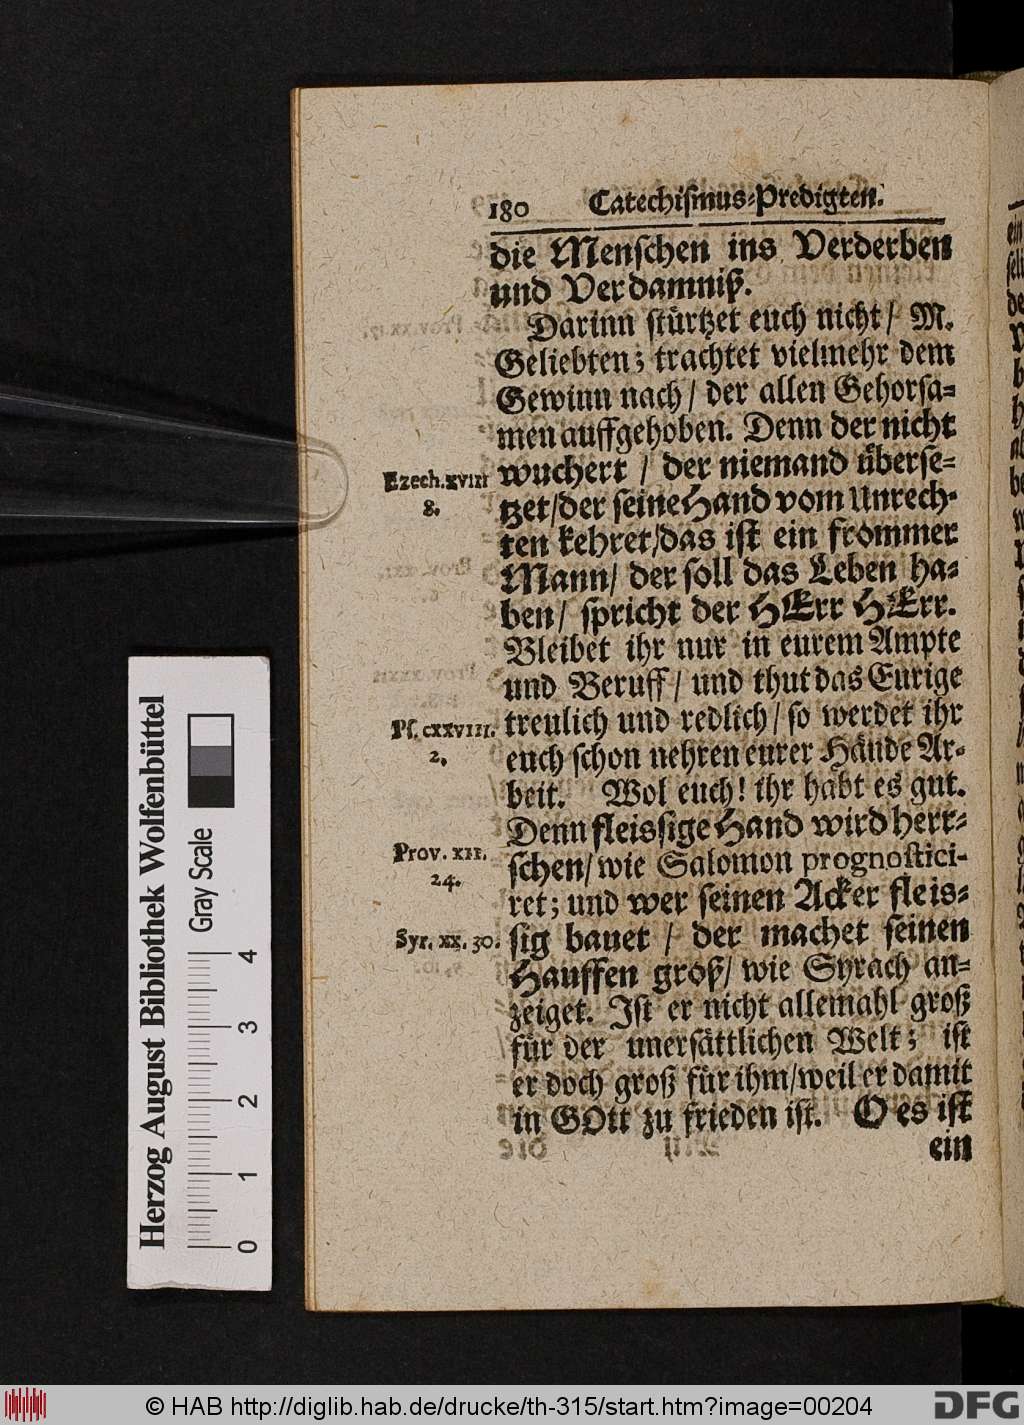 180 Catechiſmus-Predigten.
die Menſchen ins Verderben
und Verdamniß.
Darinn ſtürtzet euch nicht/ M.
Geliebten; trachtet vielmehr dem
Gewinn nach/ der allen Gehorſa-
men auffgehoben. Denn der nicht
Ezech. xviii
8.
wuchert / der niemand überſe-
tzet/der ſeine Hand vom Unrech-
ten kehret/das iſt ein frommer
Mann/ der ſoll das Leben ha-
ben/ ſpricht der HErr HErr.
Bleibet ihr nur in eurem Ampte
und Beruff/ und thut das Eurige
Pſ. cxxviii.
2.
treulich und redlich/ ſo werdet ihr
euch ſchon nehren eurer Hände Ar-
beit. Wol euch! ihr habt es gut.
Denn fleiſsige Hand wird herr-
Prov. xii.
24.
ſchen/ wie Salomon prognoſtici-
ret; und wer ſeinen Acker fleiſ-
Syr. xx. 30.
ſig bauet / der machet ſeinen
Hauffen groß/ wie Syrach an-
zeiget. Iſt er nicht allemahl groß
für der unerſättlichen Welt; iſt
er doch groß für ihm/weil er damit
in GOtt zu frieden iſt. O es iſt
ein
Herzog August Bibliothek Wolfenbüttel
Gray Scale
0 1 2 3 4
© HAB http://diglib.hab.de/drucke/th-315/start.htm?image=00204
DFG